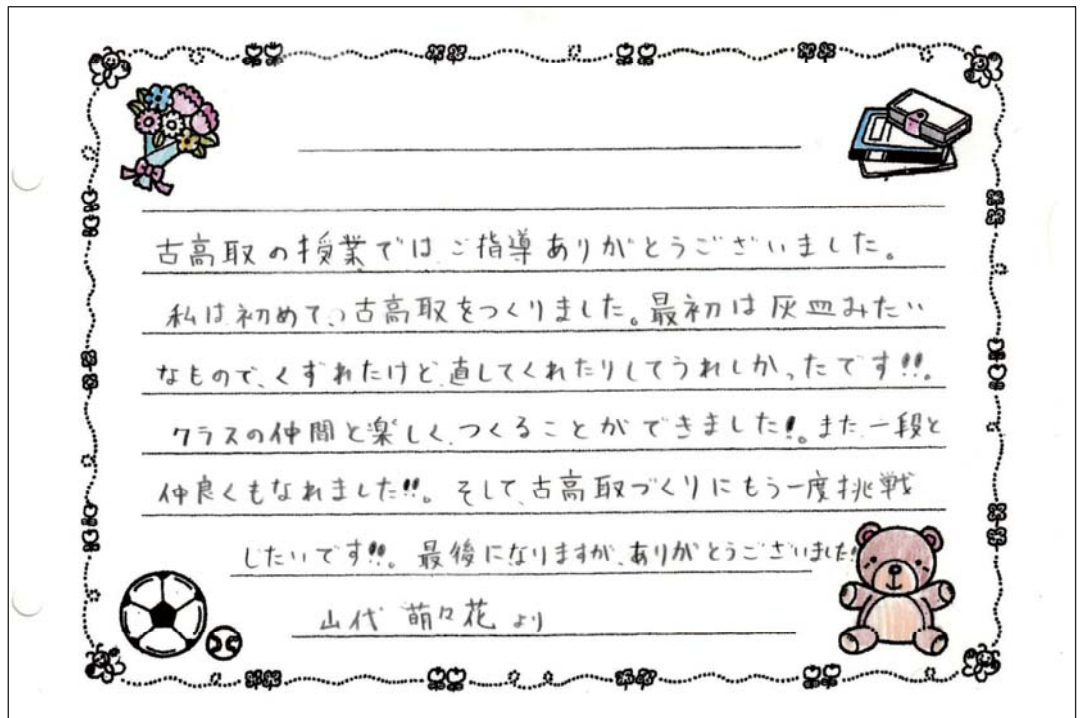 古高取の授業ではご指導ありがとうございました。
私は初めて、古高取をつくりました。最初は灰皿みたい
なもので、くずれたけど、直してくれたりしてうれしかったです!!。
クラスの仲間と楽しく、つくることができました!。また、一段と
仲良くもなれました!!。そして、古高取づくりにもう一度挑戦
したいです!!。最後になりますが、ありがとうございました!
山代 萌々花 より